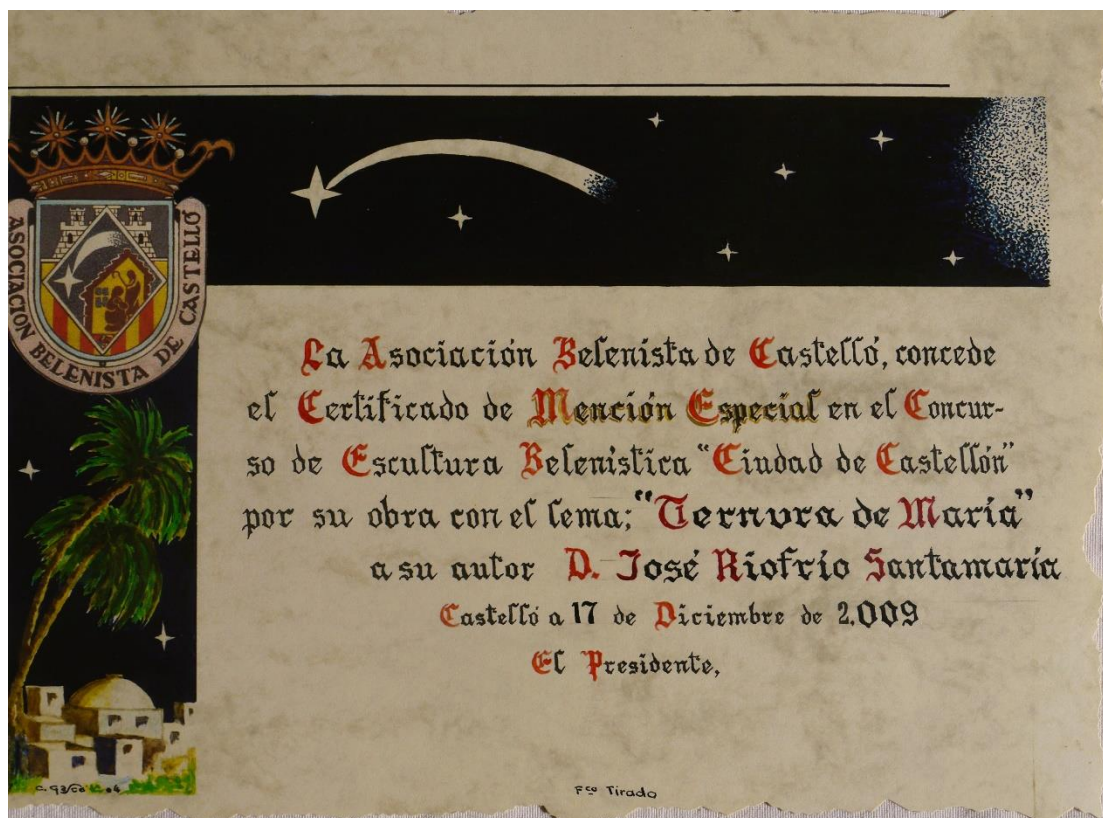 ASOCIACION BELENISTA DE CASTELLÓ
La Asociación Belenista de Castelló, concede
el Certificado de Mención Especial en el Concur-
so de Escultura Belenística "Ciudad de Castellón"
por su obra con el lema; "Ternura de María"
a su autor D. José Riofrío Santamaría
Castelló a 17 de Diciembre de 2.009
El Presidente,
Fco Tirado